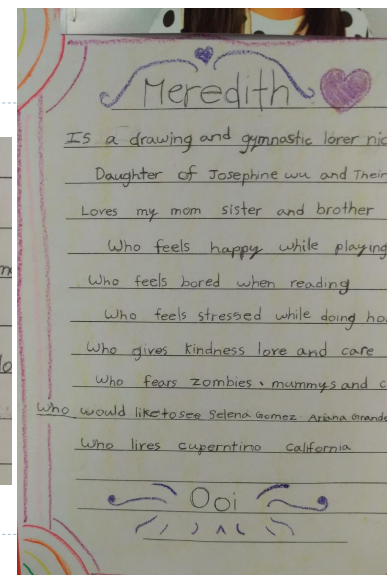 Meredith
Is a drawing and gymnastic lorer nic
Daughter of Josephine wu and Their
Loves my mom sister and brother
Who feels happy while playing
Who feels bored when reading
Who feels stressed while doing ho
Who gives kindness love and care
Who fears zombies, mummys and c
Who would like to see Selena Gomez. Ariana Grande
Who lires cupertino california
Ooi